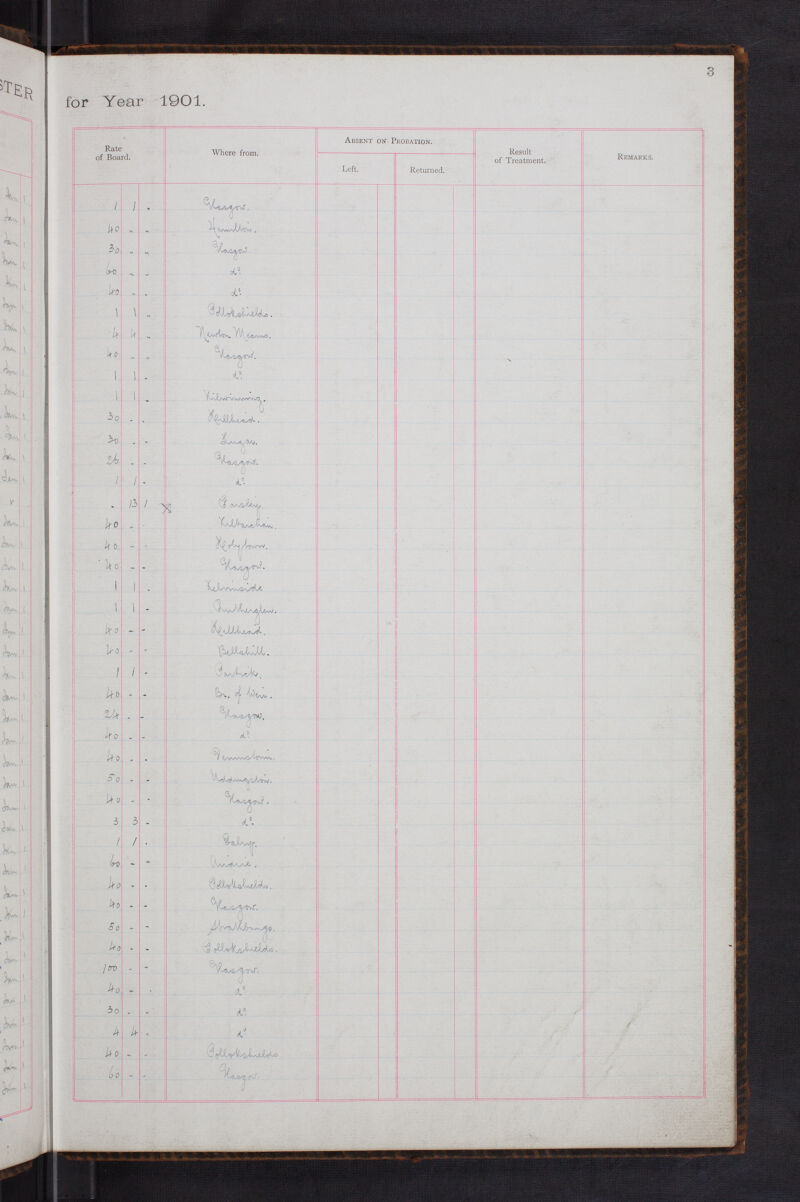 3
for Year 1901.
Rate of Board. Where from. Absent on Probation. Result of Treatment. Remarks.
Left. Returned.
1 1 - Glasgow.
40 - - Hamilton.
30 - - Glasgow
60 - - do
40 - - do
1 1 - Pollokshields.
4 4 - Newton Mearns.
40 - - Glasgow.
1 1 - do
1 1 - Kilwinning.
30 - - Hillhead.
30 - - Lugar.
26 - - Glasgow.
1 1 - do
- 13 1 x Paisley.
40 - - Kilbarchan.
40 - - Holytown.
40 - - Glasgow.
1 1 - Kelvinside
1 1 - Rutherglen.
40 - - Hillhead.
40 - - Bellshill.
1 1 - Partick.
40 - - Br. of Weir.
24 - - Glasgow.
40 - - do
40 - - Dennistoun.
50 - - Uddingston.
40 - - Glasgow.
3 3 - do
1 1 - Dalry.
60 - - Airdrie.
40 - - Pollokshields.
40 - - Glasgow.
50 - - Strathbungo.
40 - - Pollokshields.
100 - - Glasgow.
40 - - do
30 - - do
4 4 - do
40 - - Pollokshields
60 - - Glasgow.